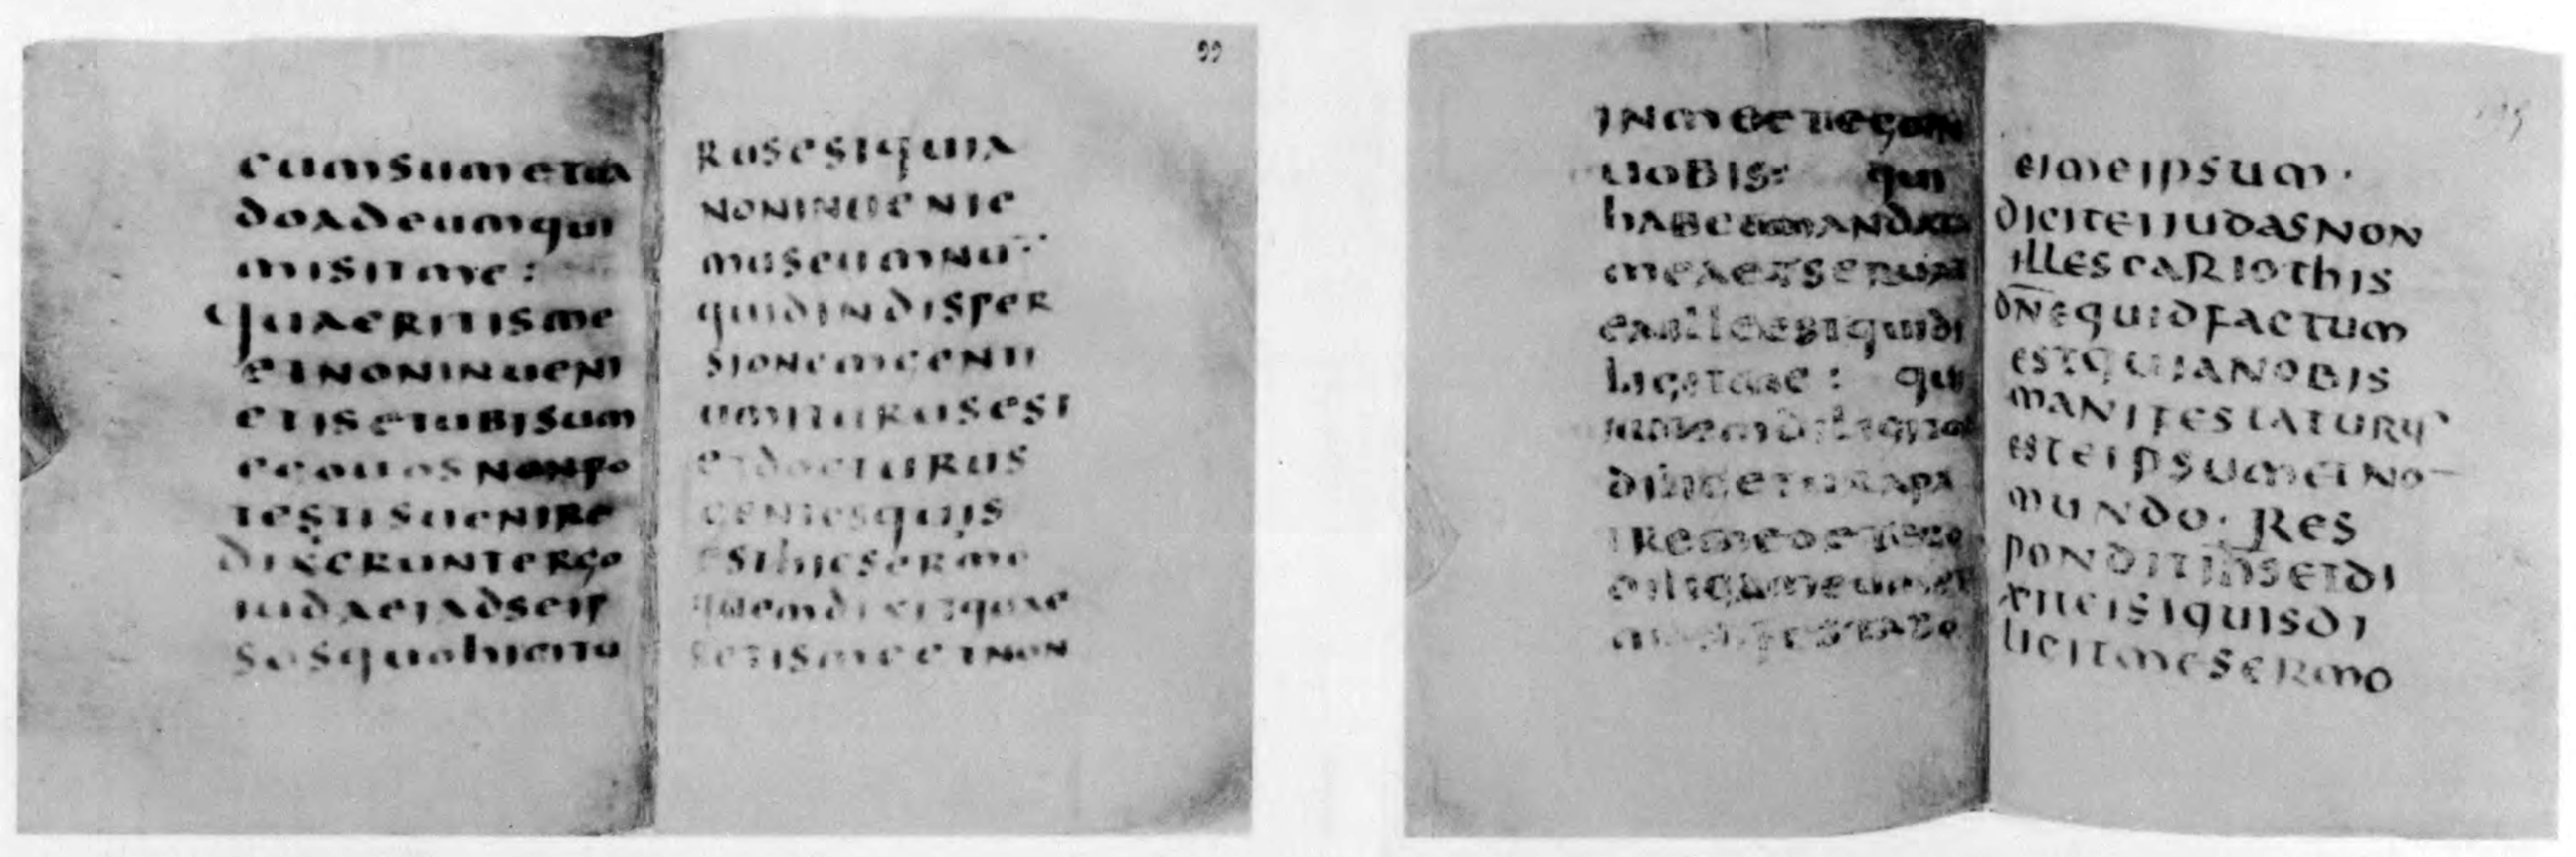 cumsumetua
doadeumqui
misitme:
quaeritisme
etnoninueni
etisetubisum
egouosnonpo
testisuenire
dixeruntergo
iudaeiadseip
sosquohicitu
99
rusestquia
noninuenie
museumnu–
quidindisper
sionemgenti
umiturusest
etdocturus
gentesquis
esthicsermo
quemdixitquae
retismeetnon
inmeetegoin
uobis: qui
habetmandata
meaetseruat
eailleestquidi
ligitme: qui
autemdiligitme
diligeturapa
tremeoetego
diligameumet
manifestabo
eimeipsum·
diciteiiudasnon
illescariothis
dn̄equidfactum
estquianobis
manifestaturus
esteipsumetno–
mundo. Res
ponditih̄setdi
xiteisiquisdi
ligitmesermo